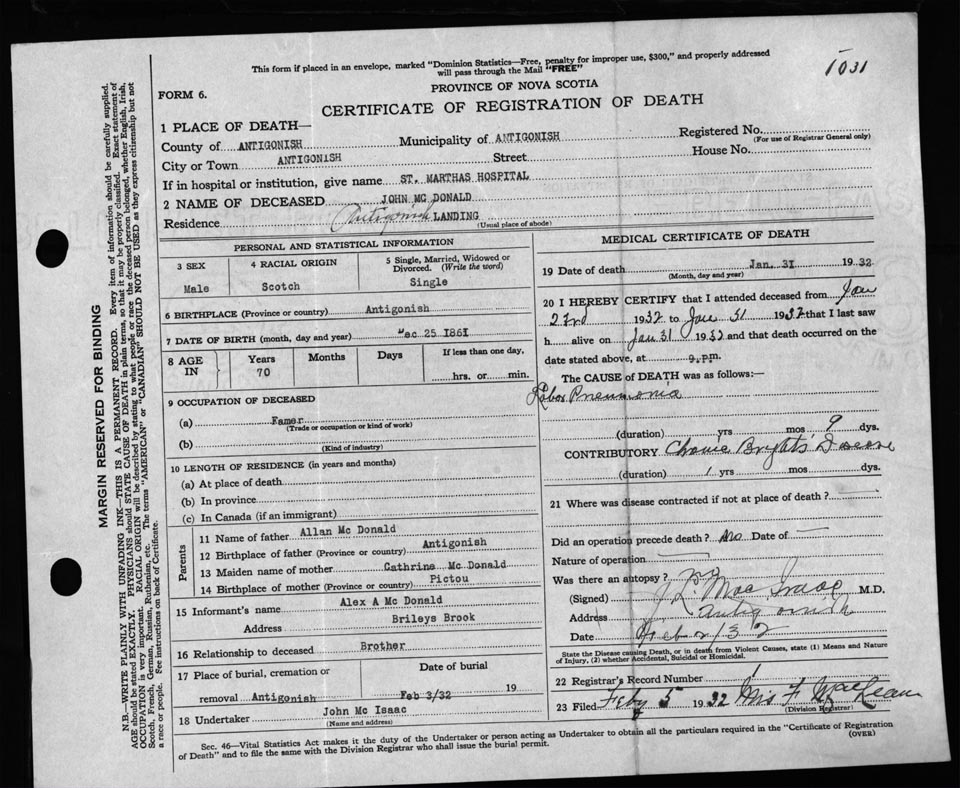 This form if placed in an envelope, marked "Dominion Statistics—Free, penalty for improper use, $300," and properly addressed
will pass through the Mail "FREE"
1031
FORM 6.
PROVINCE OF NOVA SCOTIA
CERTIFICATE OF REGISTRATION OF DEATH
1 PLACE OF DEATH—
County of ANTIGONISH Municipality of ANTIGONISH Registered No.
(For use of Registrar General only)
City or Town ANTIGONISH Street House No.
If in hospital or institution, give name ST. MARTHAS HOSPITAL
2 NAME OF DECEASED JOHN MC DONALD
Residence Antigonish LANDING
(Usual place of abode)
PERSONAL AND STATISTICAL INFORMATION
3 SEX
Male
4 RACIAL ORIGIN
Scotch
5 Single, Married, Widowed or
Divorced. (Write the word)
Single
6 BIRTHPLACE (Province or country) Antigonish
7 DATE OF BIRTH (month, day and year) Dec 25 1861
8 AGE
IN
Years
70
Months
Days
If less than one day,
hrs. or min.
9 OCCUPATION OF DECEASED
(a) Famer
(Trade or occupation or kind of work)
(b)
(Kind of industry)
10 LENGTH OF RESIDENCE (in years and months)
(a) At place of death
(b) In province
(c) In Canada (if an immigrant)
Parents
11 Name of father Allan Mc Donald
12 Birthplace of father (Province or country) Antigonish
13 Maiden name of mother Cathrine Mc Donald
14 Birthplace of mother (Province or country) Pictou
15 Informant's name Alex A Mc Donald
Address Brileys Brook
16 Relationship to deceased Brother
17 Place of burial, cremation or
removal Antigonish
Date of burial
Feb 3/32 19
18 Undertaker John Mc Isaac
(Name and address)
MEDICAL CERTIFICATE OF DEATH
19 Date of death Jan. 31 1932
(Month, day and year)
20 I HEREBY CERTIFY that I attended deceased from Jan
23rd 1932 to Jan 31 1932 that I last saw
h alive on Jan 31 1932 and that death occurred on the
date stated above, at 9.P.m.
The CAUSE of DEATH was as follows:—
Lobar Pneumonia
(duration) yrs mos 9 dys.
CONTRIBUTORY Chronic Brights Disease
(duration) 1 yrs mos dys.
21 Where was disease contracted if not at place of death?
Did an operation precede death? No Date of —
Nature of operation —
Was there an autopsy? no
(Signed) J. L. MacIsaac M.D.
Address Antigonish
Date Feb 2/32
State the Disease causing Death, or in death from Violent Causes, state (1) Means and Nature
of Injury, (2) whether Accidental, Suicidal or Homicidal.
22 Registrar's Record Number 1
23 Filed Feby 5 1932 Mrs F. MacLean
(Division Registrar)
Sec. 46—Vital Statistics Act makes it the duty of the Undertaker or person acting as Undertaker to obtain all the particulars required in the "Certificate of Registration
of Death" and to file the same with the Division Registrar who shall issue the burial permit.
(OVER)
MARGIN RESERVED FOR BINDING
N.B.—WRITE PLAINLY WITH UNFADING INK—THIS IS A PERMANENT RECORD. Every item of information should be carefully supplied.
AGE should be stated EXACTLY. PHYSICIANS should STATE CAUSE OF DEATH in plain terms, so that it may be properly classified. Exact statement of
OCCUPATION is very important. RACIAL ORIGIN will be described by stating to what people or race the deceased person belonged, whether English, Irish,
Scotch, French, German, Russian, Ruthenian, etc. The terms "AMERICAN" or "CANADIAN" SHOULD NOT BE USED as they express citizenship but not
a race or people. See instructions on back of Certificate.